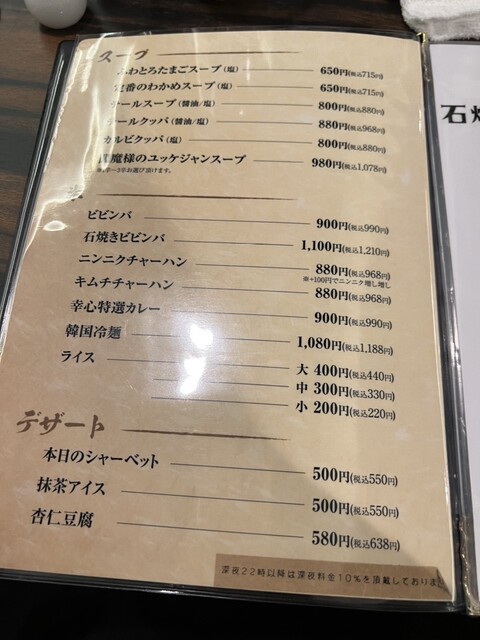 スープ
ふわとろたまごスープ（塩） 650円(税込715円)
定番のわかめスープ（塩） 650円(税込715円)
テールスープ（醤油/塩） 800円(税込880円)
テールクッパ（醤油/塩） 880円(税込968円)
カルビクッパ（塩） 800円(税込880円)
魔様のユッケジャンスープ 980円(税込1,078円)
辛～3辛お選び頂けます。
ビビンバ 900円(税込990円)
石焼きビビンバ 1,100円(税込1,210円)
ニンニクチャーハン 880円(税込968円)
※+100円でニンニク増し増し
キムチチャーハン 880円(税込968円)
幸心特選カレー 900円(税込990円)
韓国冷麺 1,080円(税込1,188円)
ライス 大 400円(税込440円)
中 300円(税込330円)
小 200円(税込220円)
デザート
本日のシャーベット 500円(税込550円)
抹茶アイス 500円(税込550円)
杏仁豆腐 580円(税込638円)
深夜22時以降は深夜料金10%を頂戴しておりま
石焼